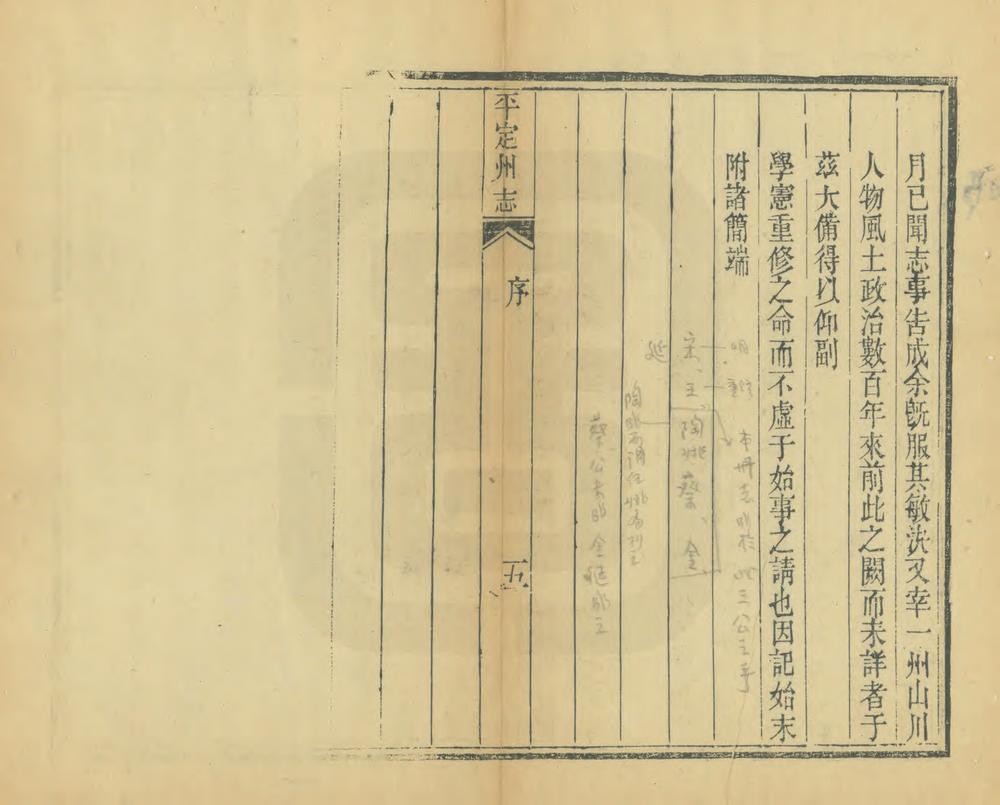 月已聞志事告成余既服其敏決又幸一州山川
人物風土政治數百年來前此之闕而未詳者于
茲大備得以仰副
學憲重修之命而不虛于始事之請也因記始末
附諸簡端
平定州志
序
五
宋、王、陶姚蔡、金